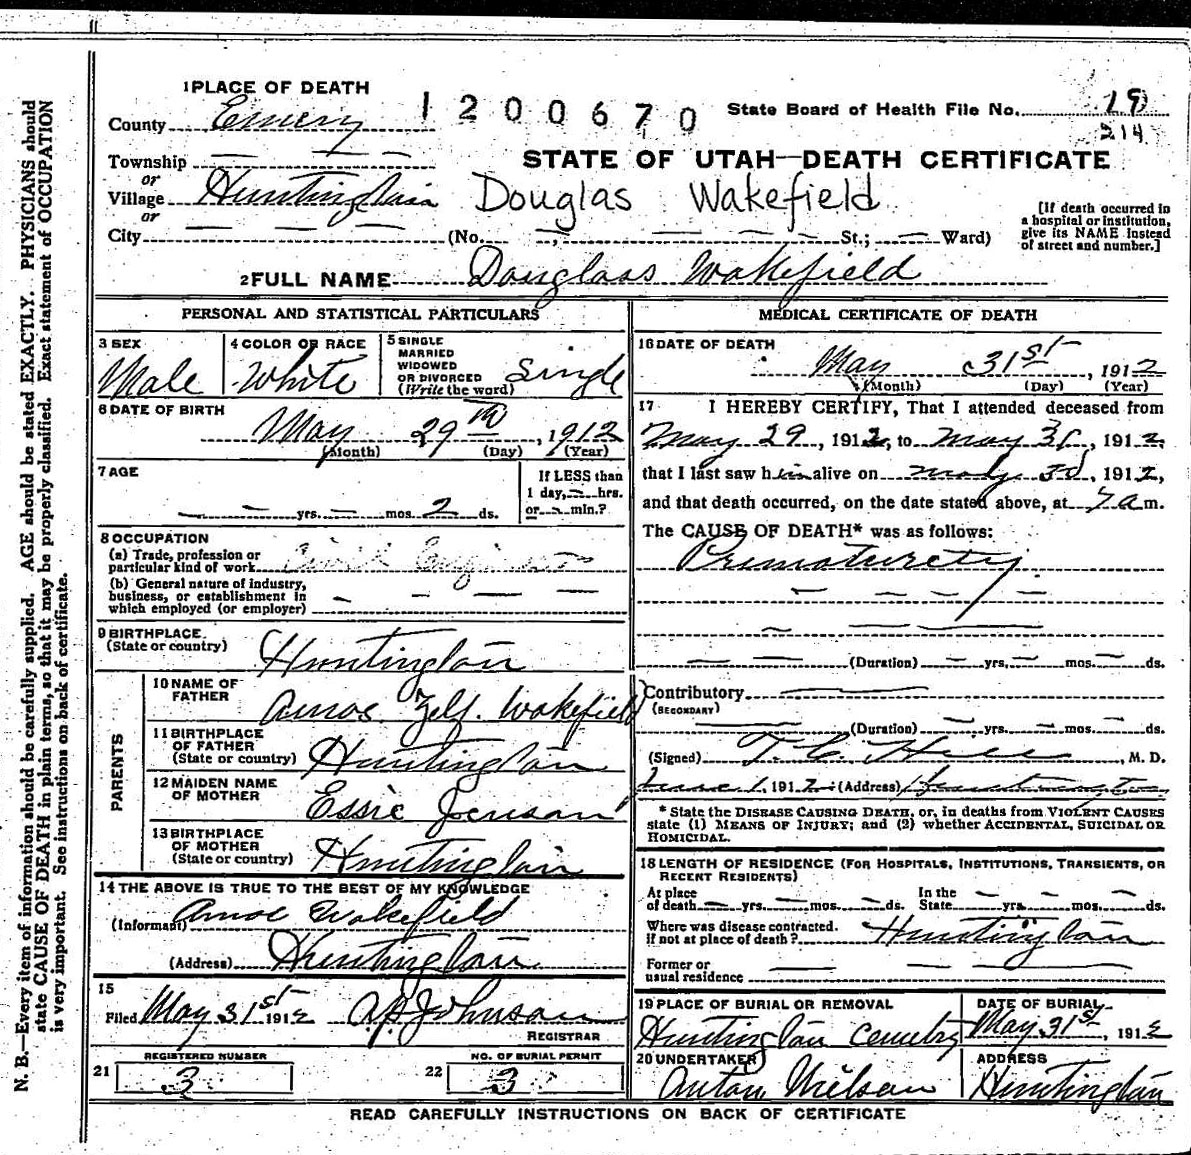 1 PLACE OF DEATH
1200670
State Board of Health File No. 19
214
County Emery
Township — — —
or
Village Huntington
or
City — — — —
STATE OF UTAH—DEATH CERTIFICATE
Douglas Wakefield
(No. — , — — — St.; — Ward)
[If death occurred in
a hospital or institution,
give its NAME instead
of street and number.]
2 FULL NAME Douglass Wakefield
PERSONAL AND STATISTICAL PARTICULARS
3 SEX
Male
4 COLOR OR RACE
White
5 SINGLE
MARRIED
WIDOWED
OR DIVORCED
(Write the word)
Single
6 DATE OF BIRTH
May 29th, 1912
(Month) (Day) (Year)
7 AGE
— — yrs. — mos. 2 ds.
If LESS than
1 day, — hrs.
or — min.?
8 OCCUPATION
(a) Trade, profession or
particular kind of work
(b) General nature of industry,
business, or establishment in
which employed (or employer) — — — —
9 BIRTHPLACE
(State or country)
Huntington
PARENTS
10 NAME OF
FATHER
Amos Wakefield
11 BIRTHPLACE
OF FATHER
(State or country)
Huntington
12 MAIDEN NAME
OF MOTHER
Essie Jenson
13 BIRTHPLACE
OF MOTHER
(State or country)
Huntington
14 THE ABOVE IS TRUE TO THE BEST OF MY KNOWLEDGE
(Informant) Amos Wakefield
(Address) Huntington
15
Filed May 31st 1912 A.P. Johnson
REGISTRAR
REGISTERED NUMBER
21 3
NO. OF BURIAL PERMIT
22 3
MEDICAL CERTIFICATE OF DEATH
16 DATE OF DEATH
May 31st, 1912
(Month) (Day) (Year)
17 I HEREBY CERTIFY, That I attended deceased from
May 29, 1912, to May 31, 1912,
that I last saw him alive on May 30, 1912,
and that death occurred, on the date stated above, at 7 a m.
The CAUSE OF DEATH* was as follows:
Prematurety
— — — —
— — —
— — (Duration) — yrs. — mos. — ds.
Contributory —
(SECONDARY)
— (Duration) — yrs. — mos. — ds.
(Signed) T. C. Hill, M. D.
June 1, 1912 (Address) Huntington
* State the DISEASE CAUSING DEATH, or, in deaths from VIOLENT CAUSES
state (1) MEANS OF INJURY; and (2) whether ACCIDENTAL, SUICIDAL OR
HOMICIDAL.
18 LENGTH OF RESIDENCE (FOR HOSPITALS, INSTITUTIONS, TRANSIENTS, OR
RECENT RESIDENTS)
At place
of death — yrs. — mos. — ds.
In the
State — yrs. — mos. — ds.
Where was disease contracted.
if not at place of death? Huntington
Former or
usual residence — — —
19 PLACE OF BURIAL OR REMOVAL
Huntington Cemetry
DATE OF BURIAL
May 31st, 1912
20 UNDERTAKER
Anton Nielson
ADDRESS
Huntington
READ CAREFULLY INSTRUCTIONS ON BACK OF CERTIFICATE
N. B.—Every item of information should be carefully supplied. AGE should be stated EXACTLY. PHYSICIANS should
state CAUSE OF DEATH in plain terms, so that it may be properly classified. Exact statement of OCCUPATION
is very important. See instructions on back of certificate.